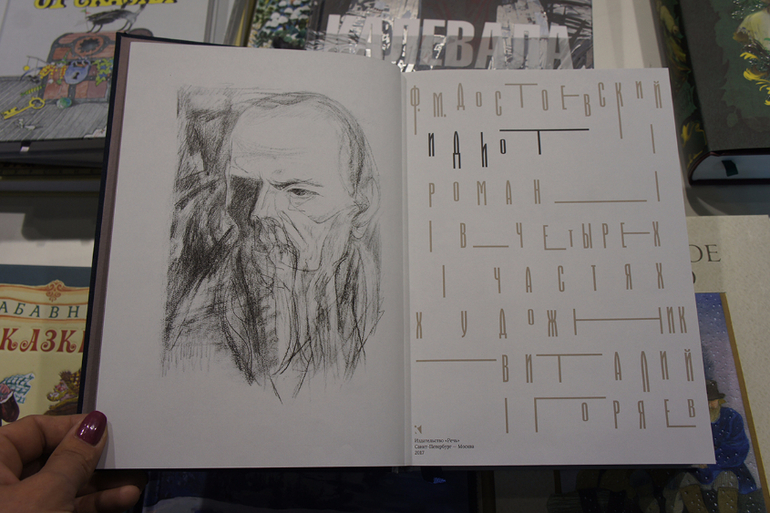 КАЛЕВАЛА
Ф.М.ДОСТОЕВСКИЙ
ИДИОТ
РОМАН
В ЧЕТЫРЕХ
ЧАСТЯХ
ХУДОЖНИК
ВИТАЛИЙ
ГОРЯЕВ
Издательство «Речь»
Санкт-Петербург — Москва
АБАВН
КАЗКИ